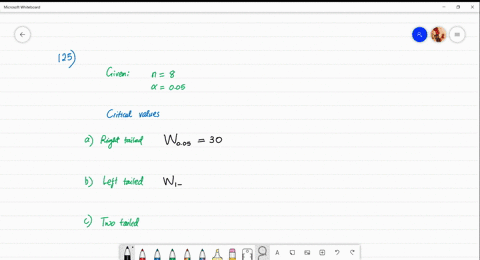 Microsoft Whiteboard
125)
Given: n = 8
α = 0.05
Critical values
a) Right tailed W0.05 = 30
b) Left tailed W1-
c) Two tailed